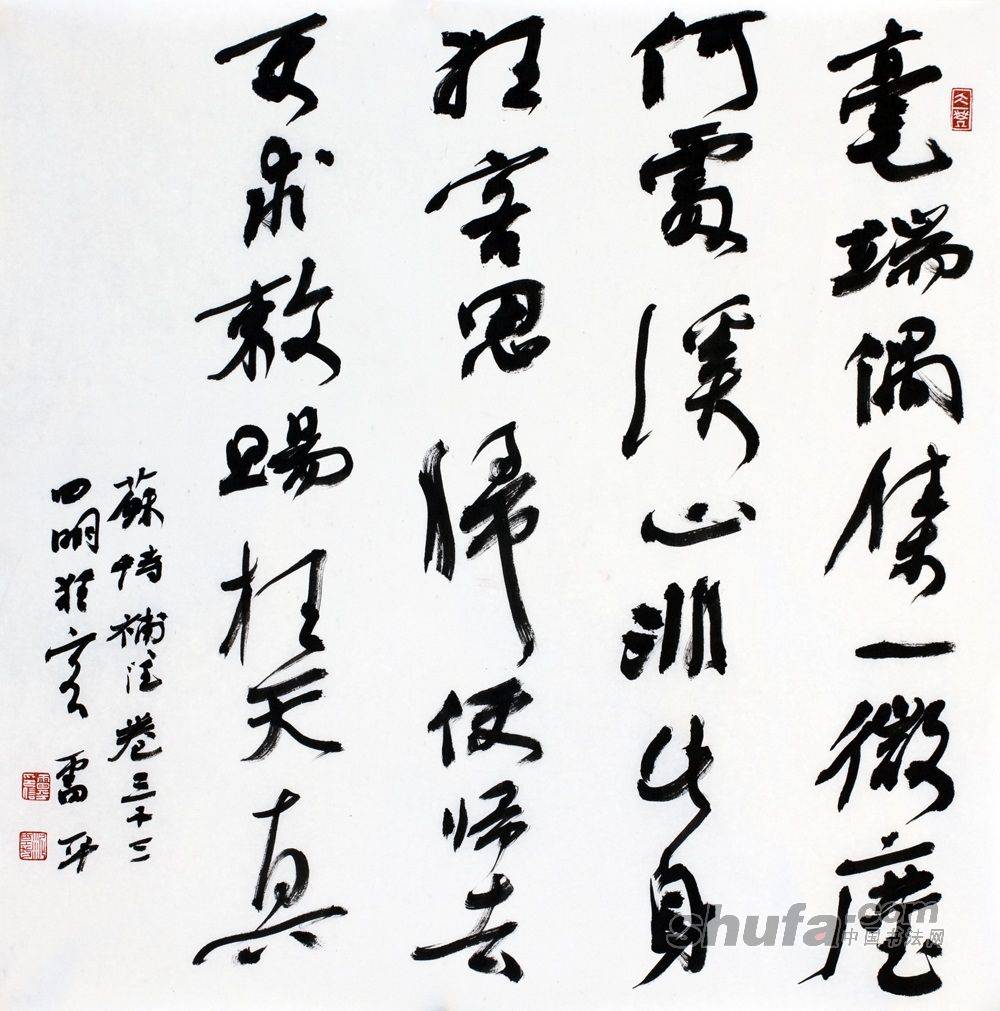 毫端偶集一微塵
何處溪山非此身
狂客思歸便歸去
更求敕賜枉天真
蘇詩補注卷三十三
四明狂客雷平
shufa.com
中国书法网